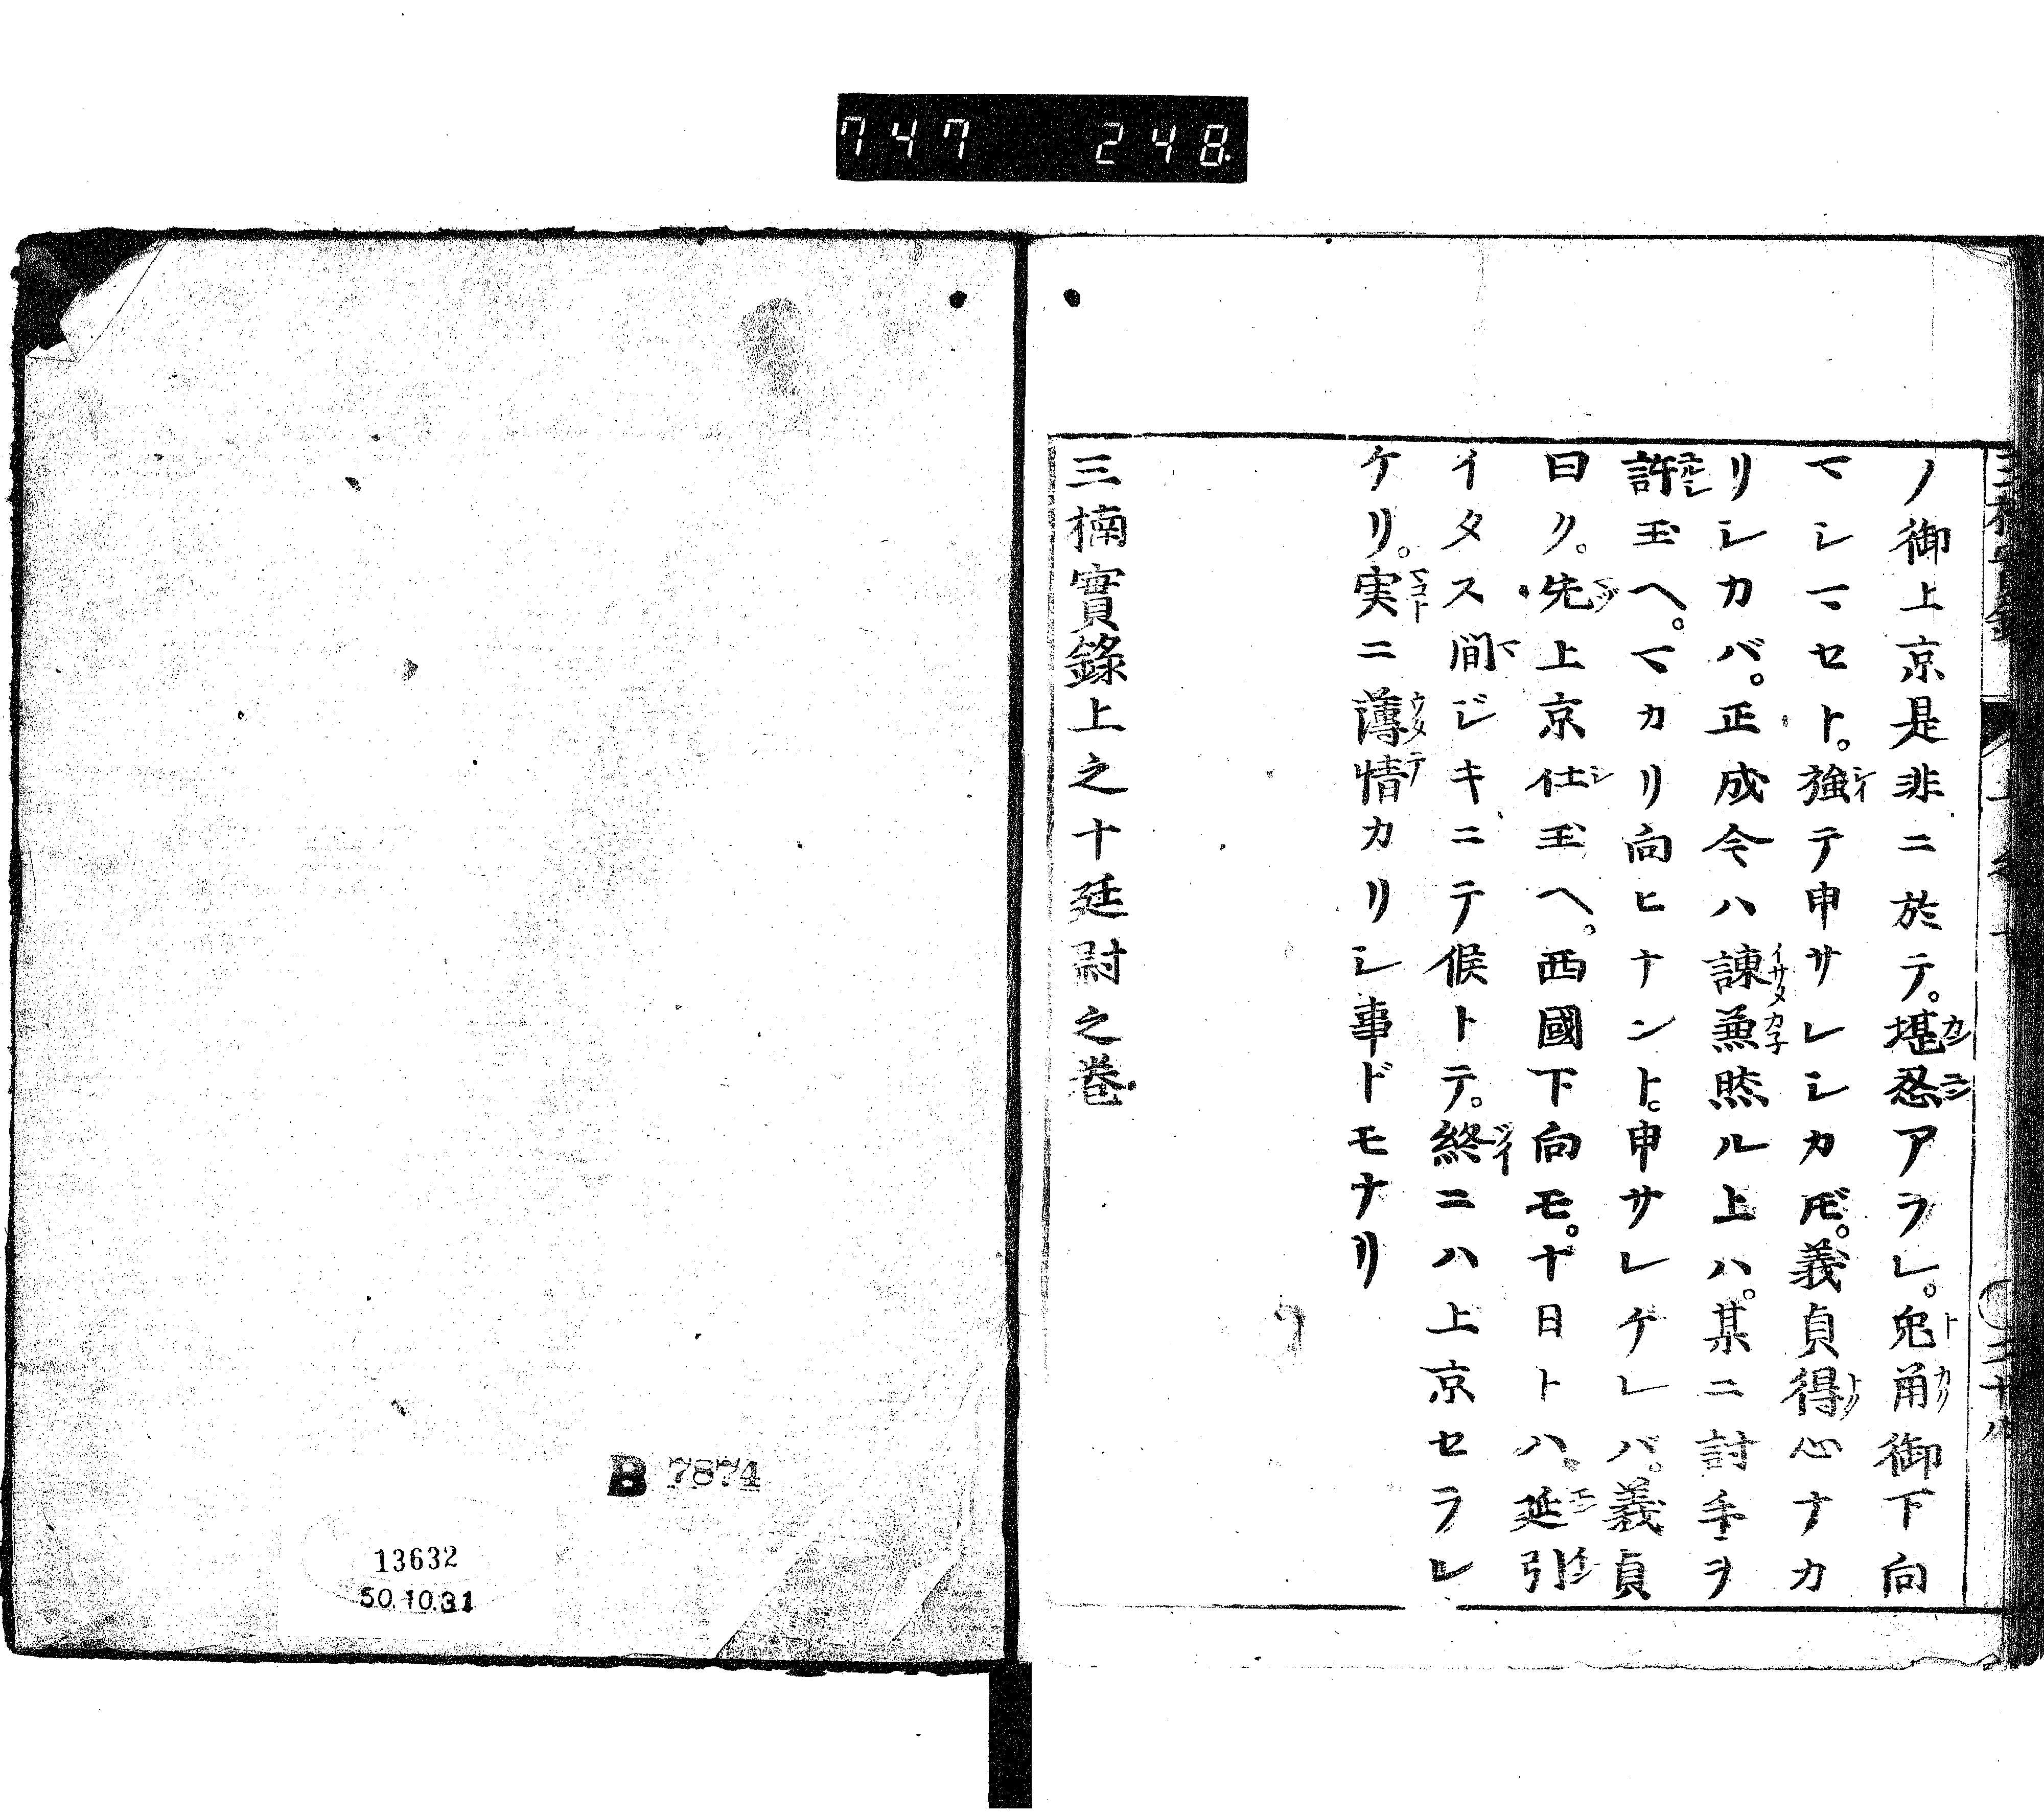 747 248
ノ御上京是非ニ於テ。堪忍アラレ。兎角御下向
マシマセト。強テ申サレシカ𪜈。義貞得心ナカ
リシカバ。正成今ハ諫兼然ル上ハ。某ニ討手ヲ
許玉ヘ。マカリ向ヒナント。申サレゲレバ。義貞
曰ク。先上京仕玉ヘ。西國下向モ。十日トハ延引
イタス間ジキニテ候トテ。終ニハ上京セラレ
ケリ。実ニ薄情カリシ事ドモナリ
三楠實錄上之十廷尉之巻
B 7874
13632
50.10.31